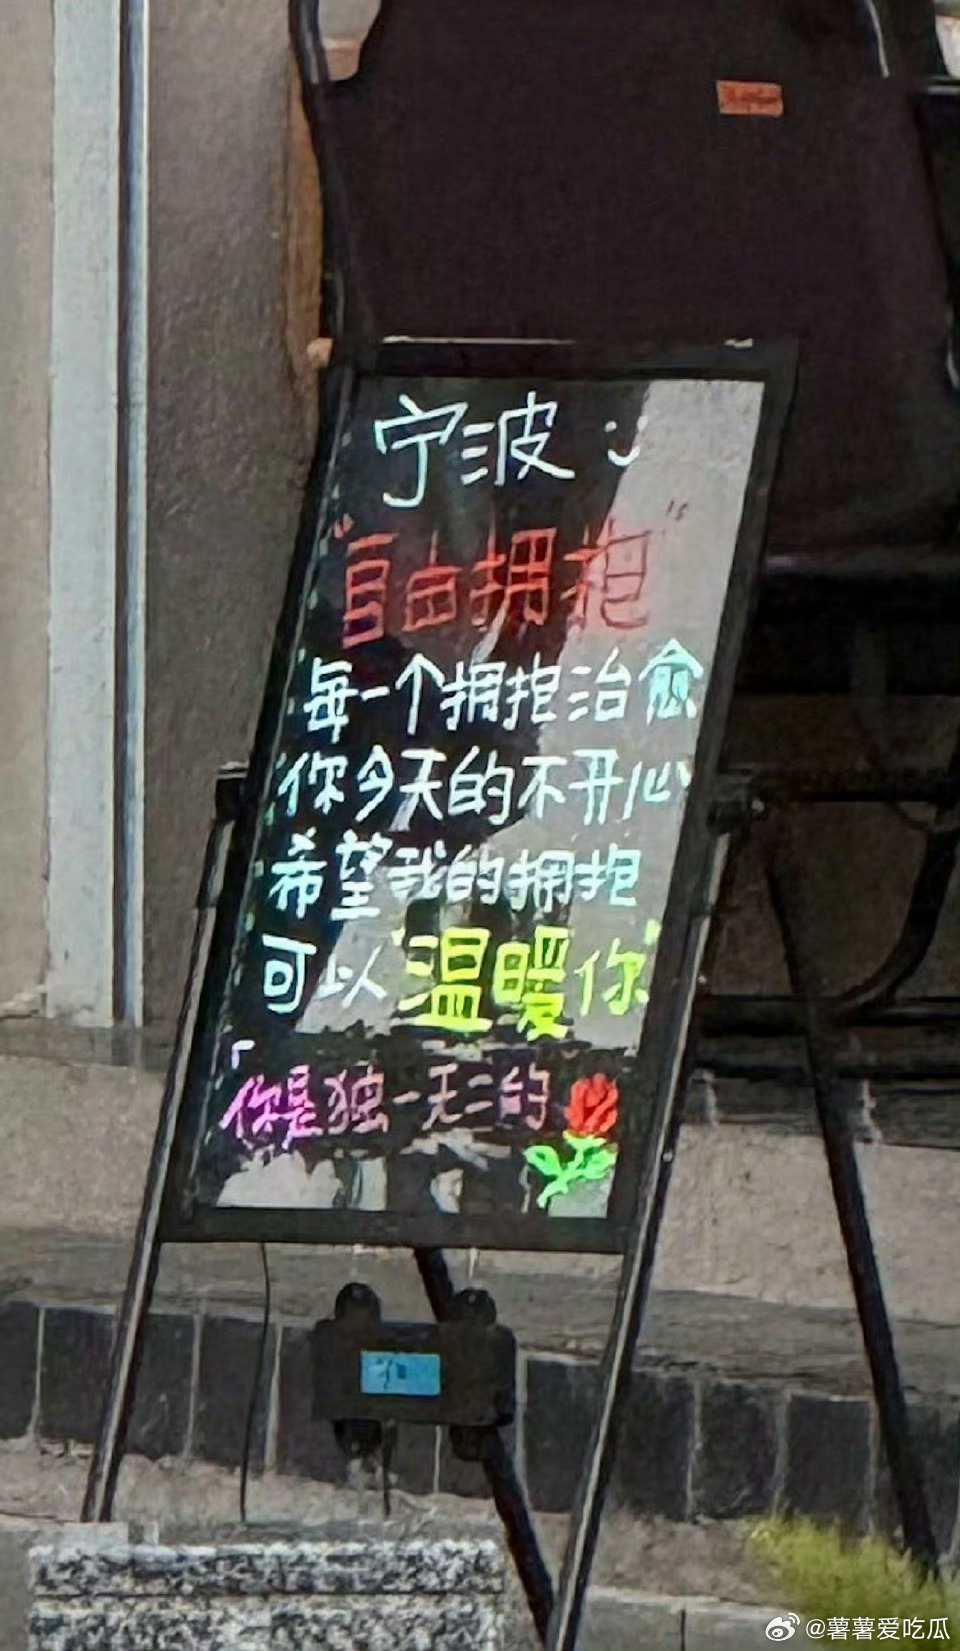 宁波
“自由拥抱”
每一个拥抱治愈
你今天的不开心
希望我的拥抱
可以“温暖你”
「你是独一无二的
@薯薯爱吃瓜